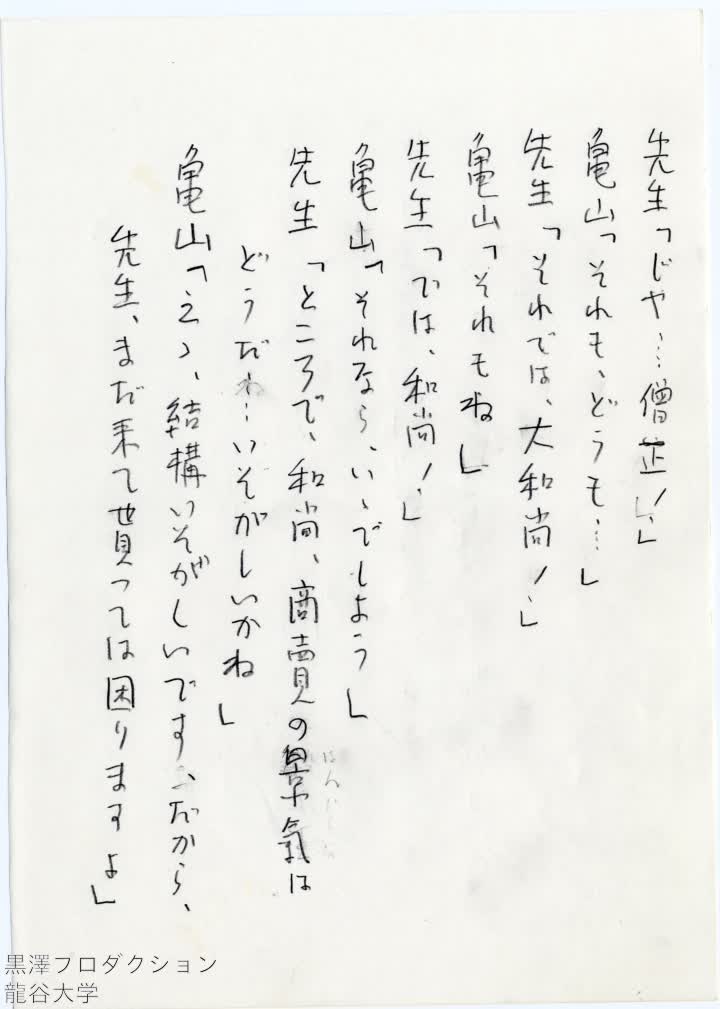 先生「じや…僧正!」
亀山「それも、どうも…」
先生「それでは、大和尚!」
亀山「それもね」
先生「では、和尚!」
亀山「それなら、いゝでしよう」
先生「ところで、和尚、商賣の景氣は
どうだね…いそがしいかね」
亀山「えゝ、結構いそがしいです、だから、
先生、まだ来て貰っては困りますよ」
黒澤プロダクション
龍谷大学